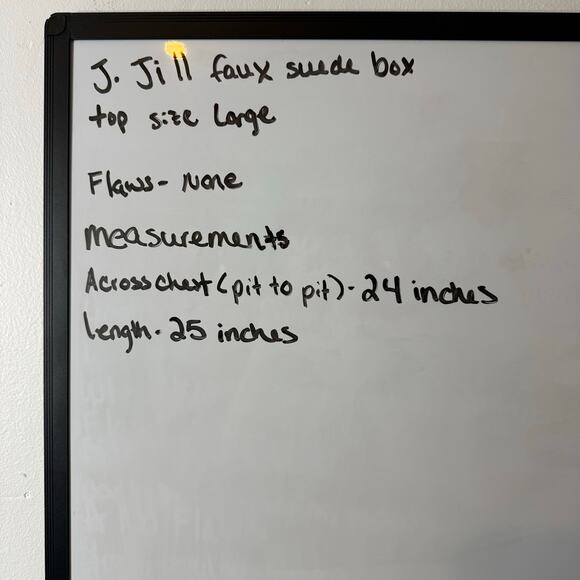 J. Jill faux suede box
top size Large
Flaws - None
measurements
Across chest (pit to pit) - 24 inches
Length - 25 inches